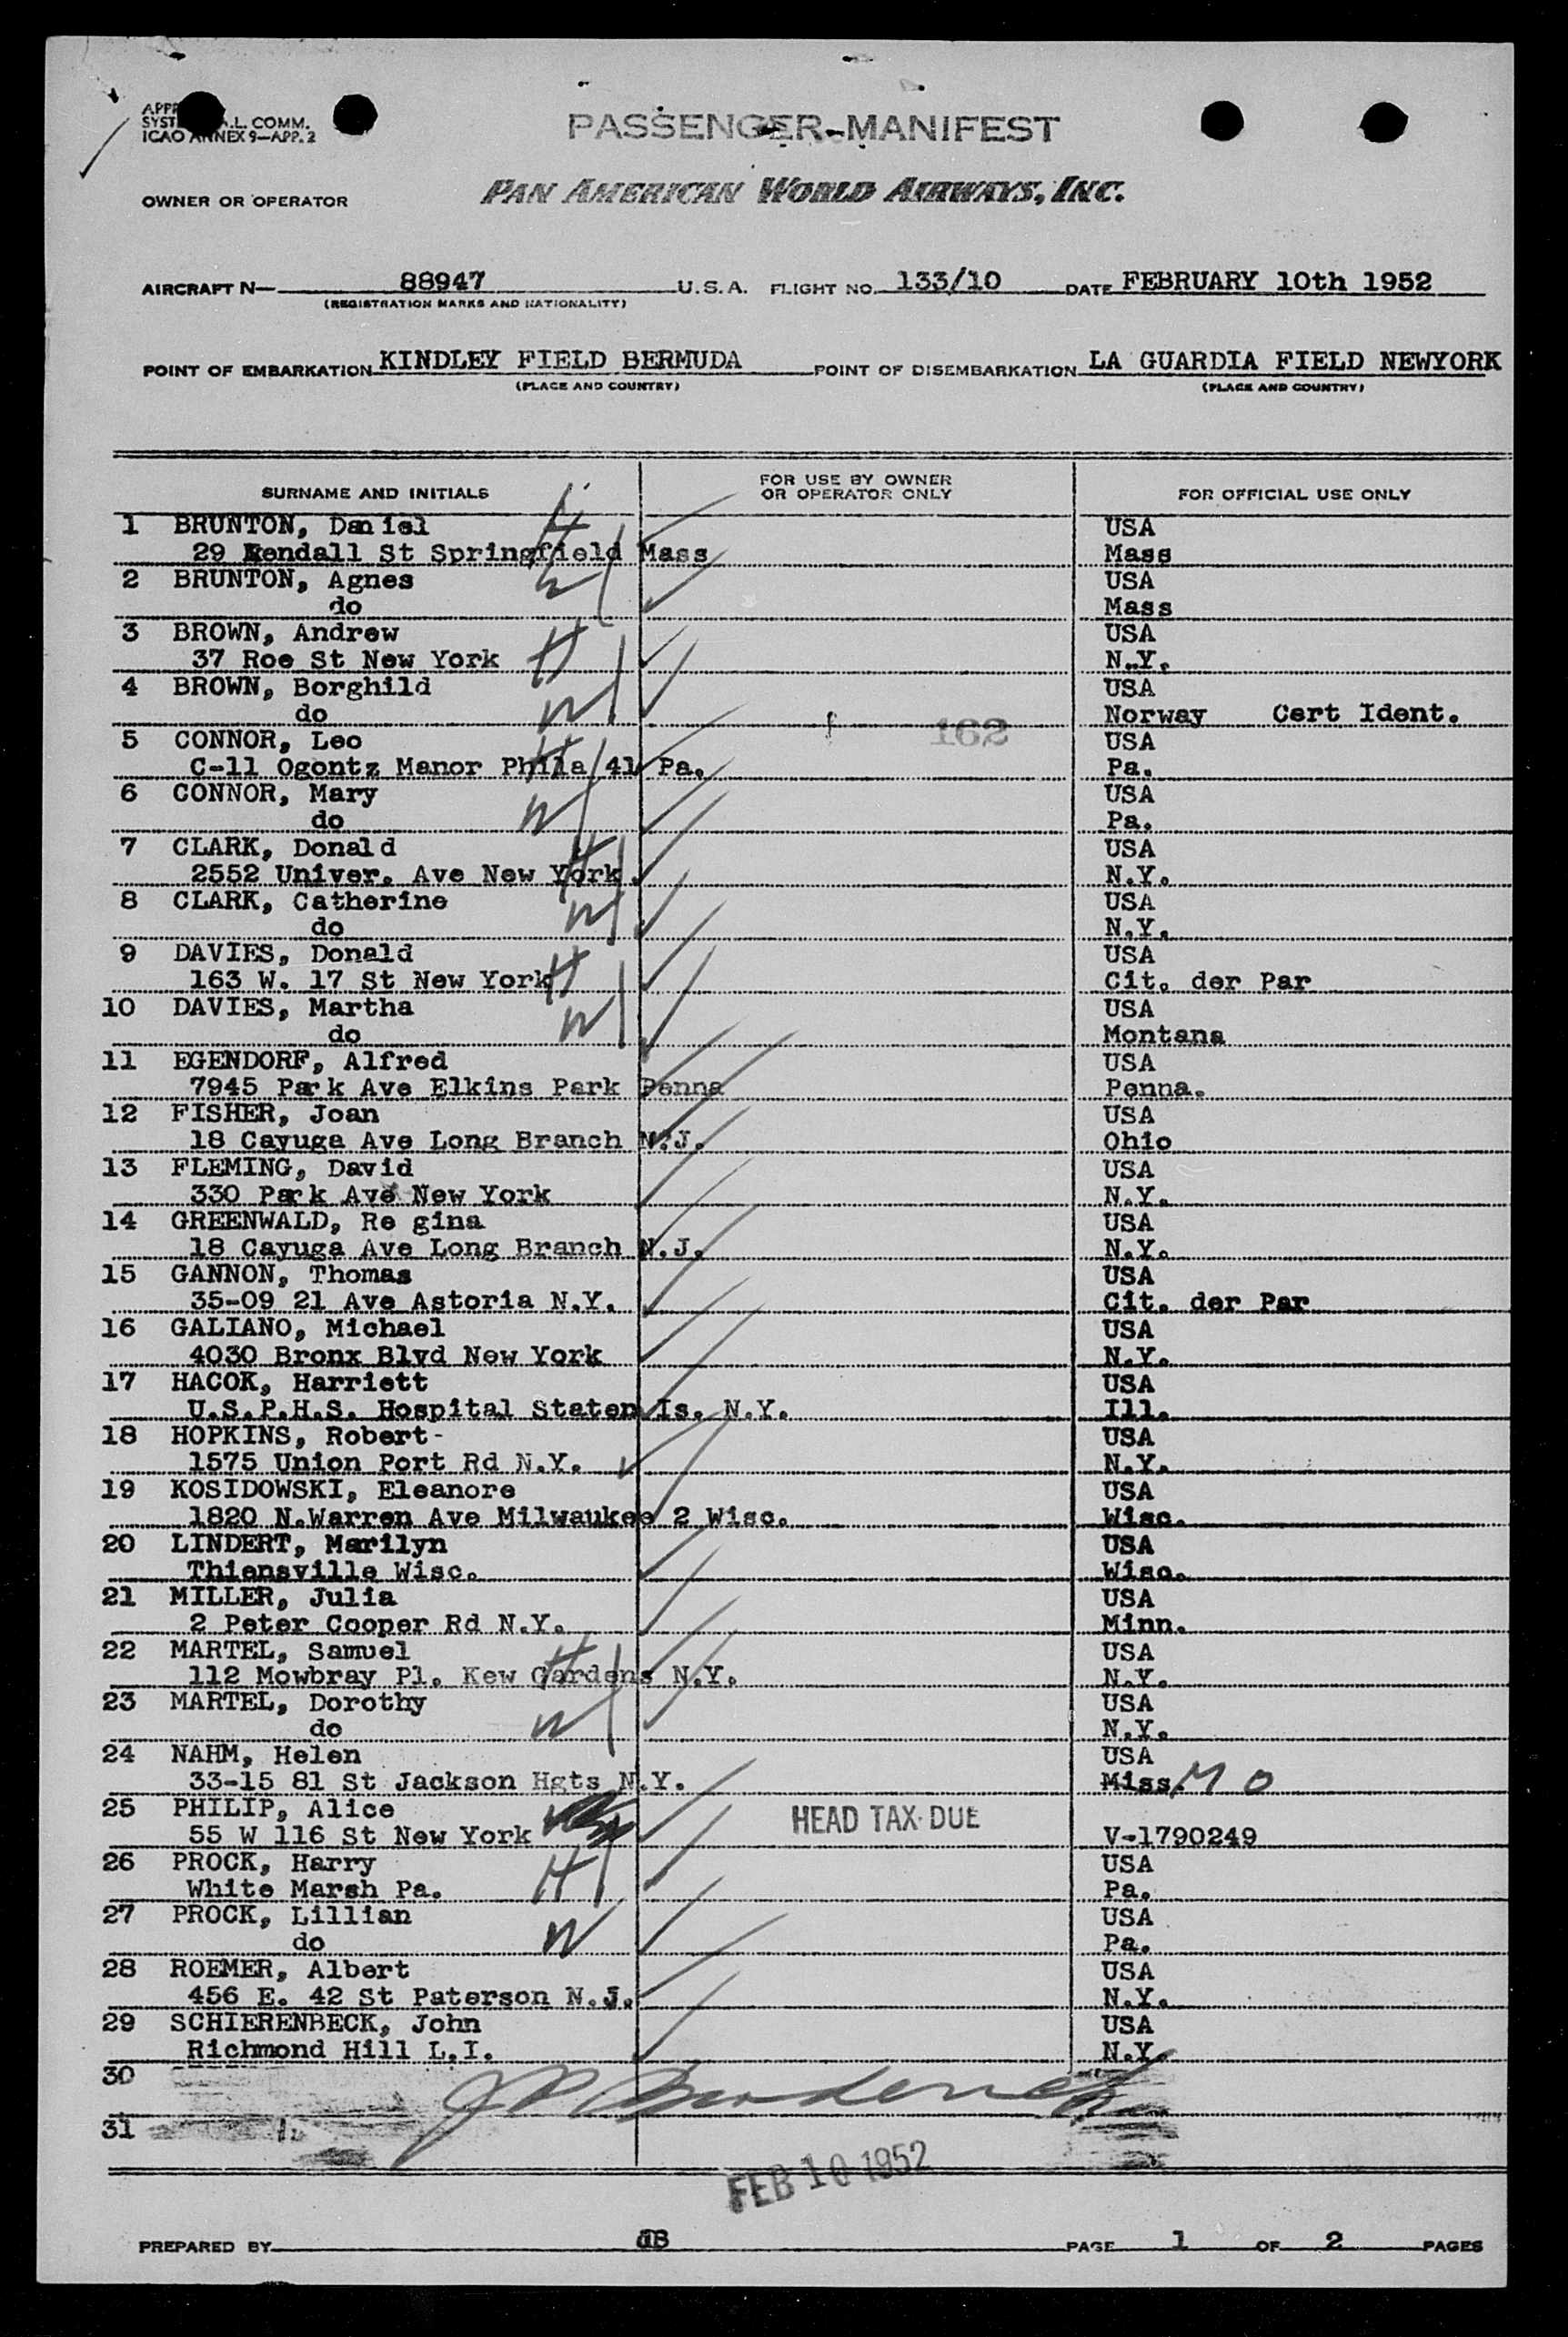 SYST
A.L. COMM.
ICAO ANNEX 9—APP. 2
PASSENGER-MANIFEST
OWNER OR OPERATOR PAN AMERICAN WORLD AIRWAYS, INC.
AIRCRAFT N— 88947 U.S.A. FLIGHT NO. 133/10 DATE FEBRUARY 10th 1952
(REGISTRATION MARKS AND NATIONALITY)
POINT OF EMBARKATION KINDLEY FIELD BERMUDA POINT OF DISEMBARKATION LA GUARDIA FIELD NEWYORK
(PLACE AND COUNTRY) (PLACE AND COUNTRY)
SURNAME AND INITIALS FOR USE BY OWNER OR OPERATOR ONLY FOR OFFICIAL USE ONLY
1 BRUNTON, Daniel H USA
29 Kendall St Springfield Mass Mass
2 BRUNTON, Agnes W USA
do Mass
3 BROWN, Andrew H USA
37 Roe St New York N.Y.
4 BROWN, Borghild W USA
do 162 Norway Cert Ident.
5 CONNOR, Leo H USA
C-11 Ogontz Manor Phila 41 Pa. Pa.
6 CONNOR, Mary W USA
do Pa.
7 CLARK, Donald H USA
2552 Univer. Ave New York. N.Y.
8 CLARK, Catherine W USA
do N.Y.
9 DAVIES, Donald H USA
163 W. 17 St New York Cit. der Par
10 DAVIES, Martha W USA
do Montana
11 EGENDORF, Alfred USA
7945 Park Ave Elkins Park Penna Penna.
12 FISHER, Joan USA
18 Cayuga Ave Long Branch N.J. Ohio
13 FLEMING, David USA
330 Park Ave New York N.Y.
14 GREENWALD, Re gina USA
18 Cayuga Ave Long Branch N.J. N.Y.
15 GANNON, Thomas USA
35-09 21 Ave Astoria N.Y. Cit. der Par
16 GALIANO, Michael USA
4030 Bronx Blvd New York N.Y.
17 HACOK, Harriett USA
U.S.P.H.S. Hospital Staten Is. N.Y. Ill.
18 HOPKINS, Robert- USA
1575 Union Port Rd N.Y. N.Y.
19 KOSIDOWSKI, Eleanore USA
1820 N.Warren Ave Milwaukee 2 Wisc. Wisc.
20 LINDERT, Marilyn USA
Thiensville Wisc. Wisc.
21 MILLER, Julia USA
2 Peter Cooper Rd N.Y. Minn.
22 MARTEL, Samuel H USA
112 Mowbray Pl. Kew Gardens N.Y. N.Y.
23 MARTEL, Dorothy W USA
do N.Y.
24 NAHM, Helen USA
33-15 81 St Jackson Hgts N.Y. Miss. M O
25 PHILIP, Alice HEAD TAX DUE
55 W 116 St New York V-1790249
26 PROCK, Harry H USA
White Marsh Pa. Pa.
27 PROCK, Lillian W USA
do Pa.
28 ROEMER, Albert USA
456 E. 42 St Paterson N.J. N.Y.
29 SCHIERENBECK, John USA
Richmond Hill L.I. N.Y.
30
31
FEB 10 1952
PREPARED BY PAGE 1 OF 2 PAGES